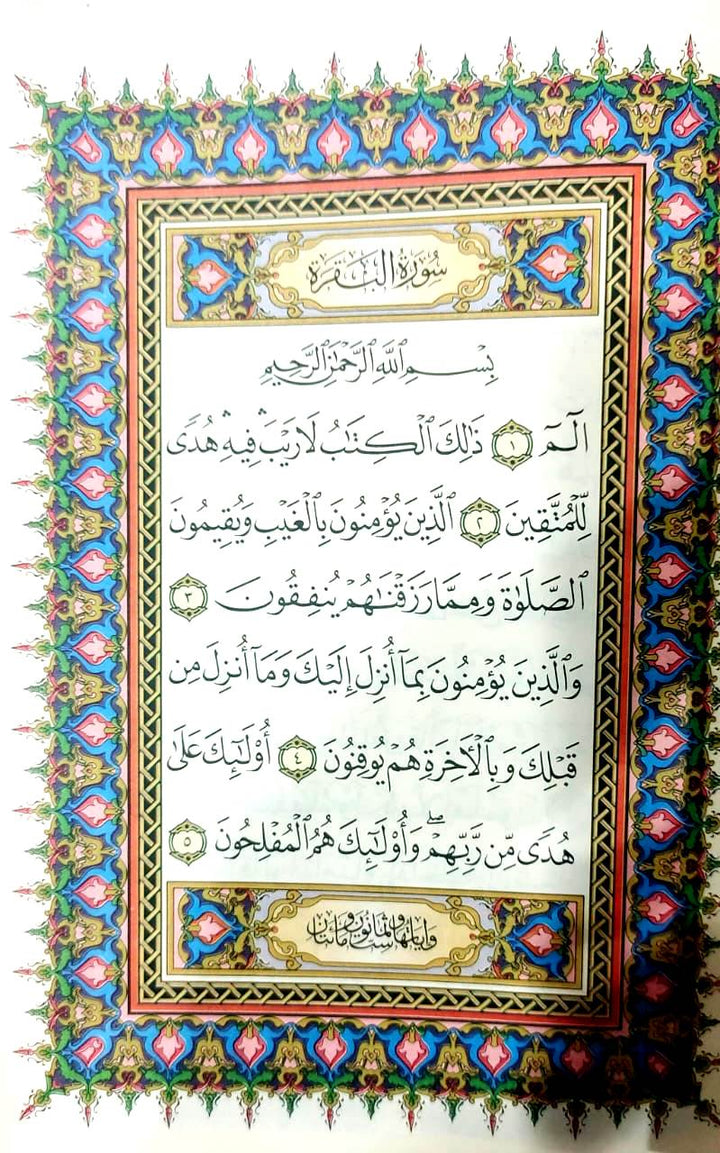 سُورَةُ الْبَقَرَةِ
بِسْمِ ٱللَّهِ ٱلرَّحْمَٰنِ ٱلرَّحِيمِ
الٓمٓ ١ ذَٰلِكَ ٱلْكِتَٰبُ لَا رَيْبَ ۛ فِيهِ ۛ هُدًى
لِّلْمُتَّقِينَ ٢ ٱلَّذِينَ يُؤْمِنُونَ بِٱلْغَيْبِ وَيُقِيمُونَ
ٱلصَّلَوٰةَ وَمِمَّا رَزَقْنَٰهُمْ يُنفِقُونَ ٣
وَٱلَّذِينَ يُؤْمِنُونَ بِمَآ أُنزِلَ إِلَيْكَ وَمَآ أُنزِلَ مِن
قَبْلِكَ وَبِٱلْأَخِرَةِ هُمْ يُوقِنُونَ ٤ أُو۟لَٰٓئِكَ عَلَىٰ
هُدًى مِّن رَّبِّهِمْ ۖ وَأُو۟لَٰٓئِكَ هُمُ ٱلْمُفْلِحُونَ ٥
وَآيَاتُهَا سِتٌّ وَثَمَانُونَ وَمِائَتَانِ